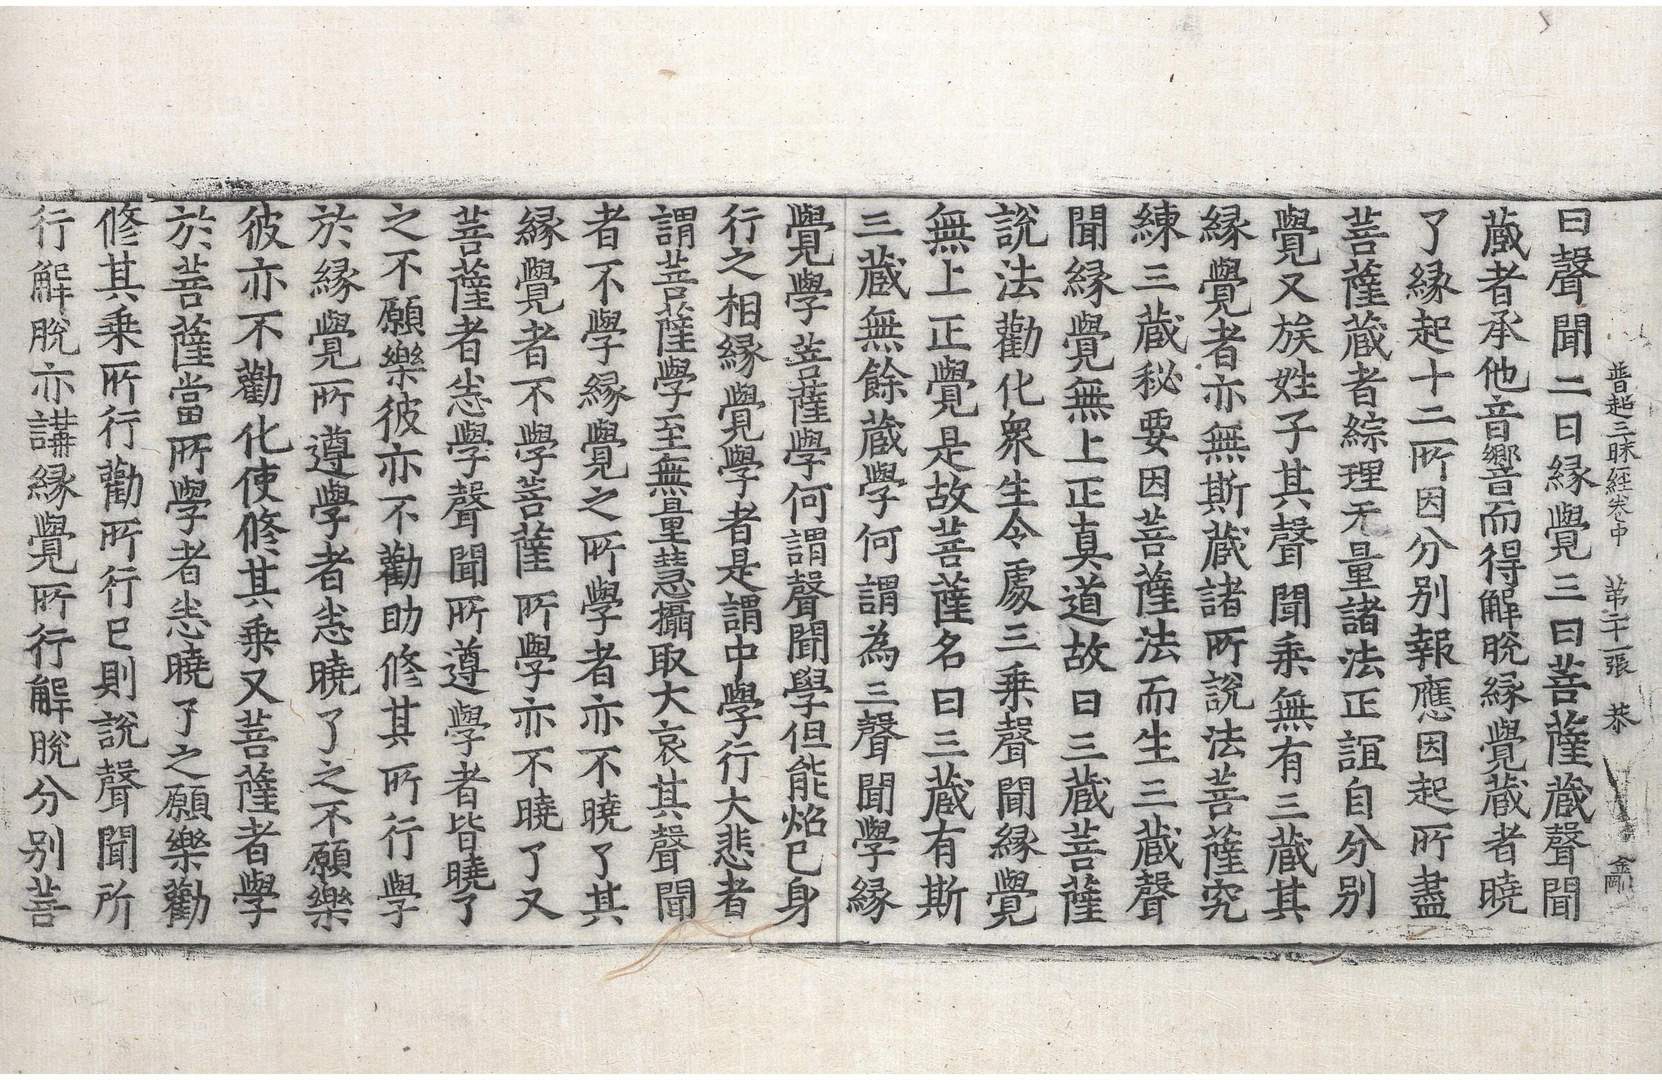 普超三昧經卷中　第二十一張　恭
曰聲聞二曰縁覺三曰菩薩蔵聲聞
蔵者承他音響而得解脫縁覺蔵者曉
了縁起十二所因分别報應因起所盡
菩薩蔵者綜理无量諸法正誼自分别
覺又族姓子其聲聞乘無有三蔵其
縁覺者亦無斯蔵諸所說法菩薩究
練三蔵秘要因菩薩法而生三蔵聲
聞縁覺無上正真道故曰三蔵菩薩
說法勸化衆生令處三乗聲聞縁覺
無上正覺是故菩薩名曰三蔵有斯
三蔵無餘蔵學何謂為三聲聞學縁
覺學菩薩學何謂聲聞學但能炤已身
行之相縁覺學者是謂中學行大悲者
謂菩薩學至無量慧攝取大哀其聲聞
者不學縁覺之所學者亦不曉了其
縁覺者不學菩薩所學亦不曉了又
菩薩者悉學聲聞所遵學者皆曉了
之不願樂彼亦不勸助修其所行學
於縁覺所遵學者悉曉了之不願樂
彼亦不勸化使修其乗又菩薩者學
於菩薩當所學者悉曉了之願樂勸
修其乗所行勸所行已則說聲聞所
行解脫亦講縁覺所行解脫分别菩